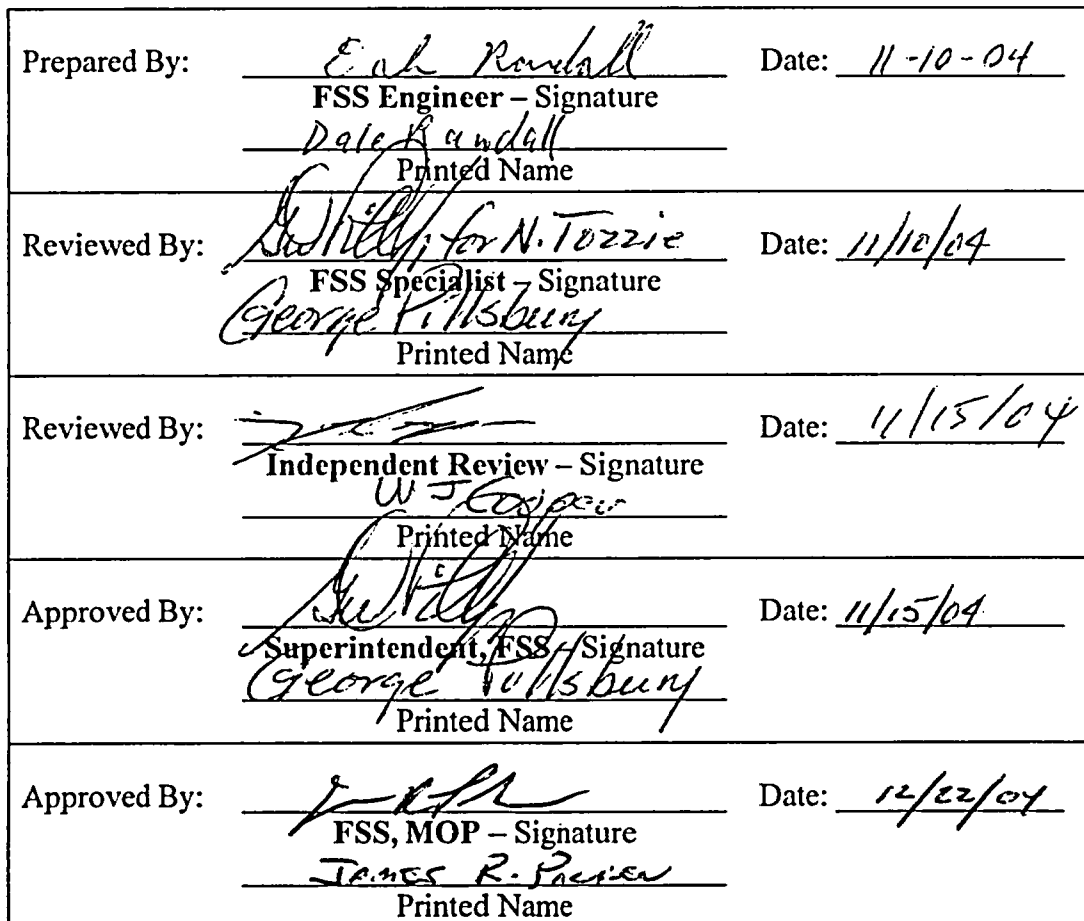 Prepared By: Randall Date: 11-10-04
FSS Engineer – Signature
Dale Randall
Printed Name
Reviewed By: for N. Tozzie Date: 11/10/04
FSS Specialist – Signature
George Pillsbury
Printed Name
Reviewed By: Date: 11/15/04
Independent Review – Signature
W J Cooper
Printed Name
Approved By: Date: 11/15/04
Superintendent, FSS – Signature
George Pillsbury
Printed Name
Approved By: Date: 12/22/04
FSS, MOP – Signature
James R.
Printed Name